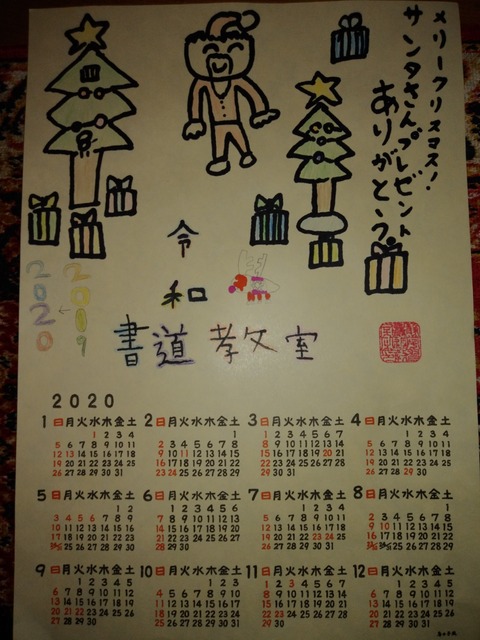 メリークリスマス!
サンタさんプレゼント
ありがとう。
令
和
2020
←
2019
書道教室
2020
1 日月火水木金土
1 2 3 4
5 6 7 8 9 10 11
12 13 14 15 16 17 18
19 20 21 22 23 24 25
26 27 28 29 30 31
2 日月火水木金土
1
2 3 4 5 6 7 8
9 10 11 12 13 14 15
16 17 18 19 20 21 22
23 24 25 26 27 28 29
3 日月火水木金土
1 2 3 4 5 6 7
8 9 10 11 12 13 14
15 16 17 18 19 20 21
22 23 24 25 26 27 28
29 30 31
4 日月火水木金土
1 2 3 4
5 6 7 8 9 10 11
12 13 14 15 16 17 18
19 20 21 22 23 24 25
26 27 28 29 30
5 日月火水木金土
1 2
3 4 5 6 7 8 9
10 11 12 13 14 15 16
17 18 19 20 21 22 23
24/31 25 26 27 28 29 30
6 日月火水木金土
1 2 3 4 5 6
7 8 9 10 11 12 13
14 15 16 17 18 19 20
21 22 23 24 25 26 27
28 29 30
7 日月火水木金土
1 2 3 4
5 6 7 8 9 10 11
12 13 14 15 16 17 18
19 20 21 22 23 24 25
26 27 28 29 30 31
8 日月火水木金土
1
2 3 4 5 6 7 8
9 10 11 12 13 14 15
16 17 18 19 20 21 22
23/30 24/31 25 26 27 28 29
9 日月火水木金土
1 2 3 4 5
6 7 8 9 10 11 12
13 14 15 16 17 18 19
20 21 22 23 24 25 26
27 28 29 30
10 日月火水木金土
1 2 3
4 5 6 7 8 9 10
11 12 13 14 15 16 17
18 19 20 21 22 23 24
25 26 27 28 29 30 31
11 日月火水木金土
1 2 3 4 5 6 7
8 9 10 11 12 13 14
15 16 17 18 19 20 21
22 23 24 25 26 27 28
29 30
12 日月火水木金土
1 2 3 4 5
6 7 8 9 10 11 12
13 14 15 16 17 18 19
20 21 22 23 24 25 26
27 28 29 30 31